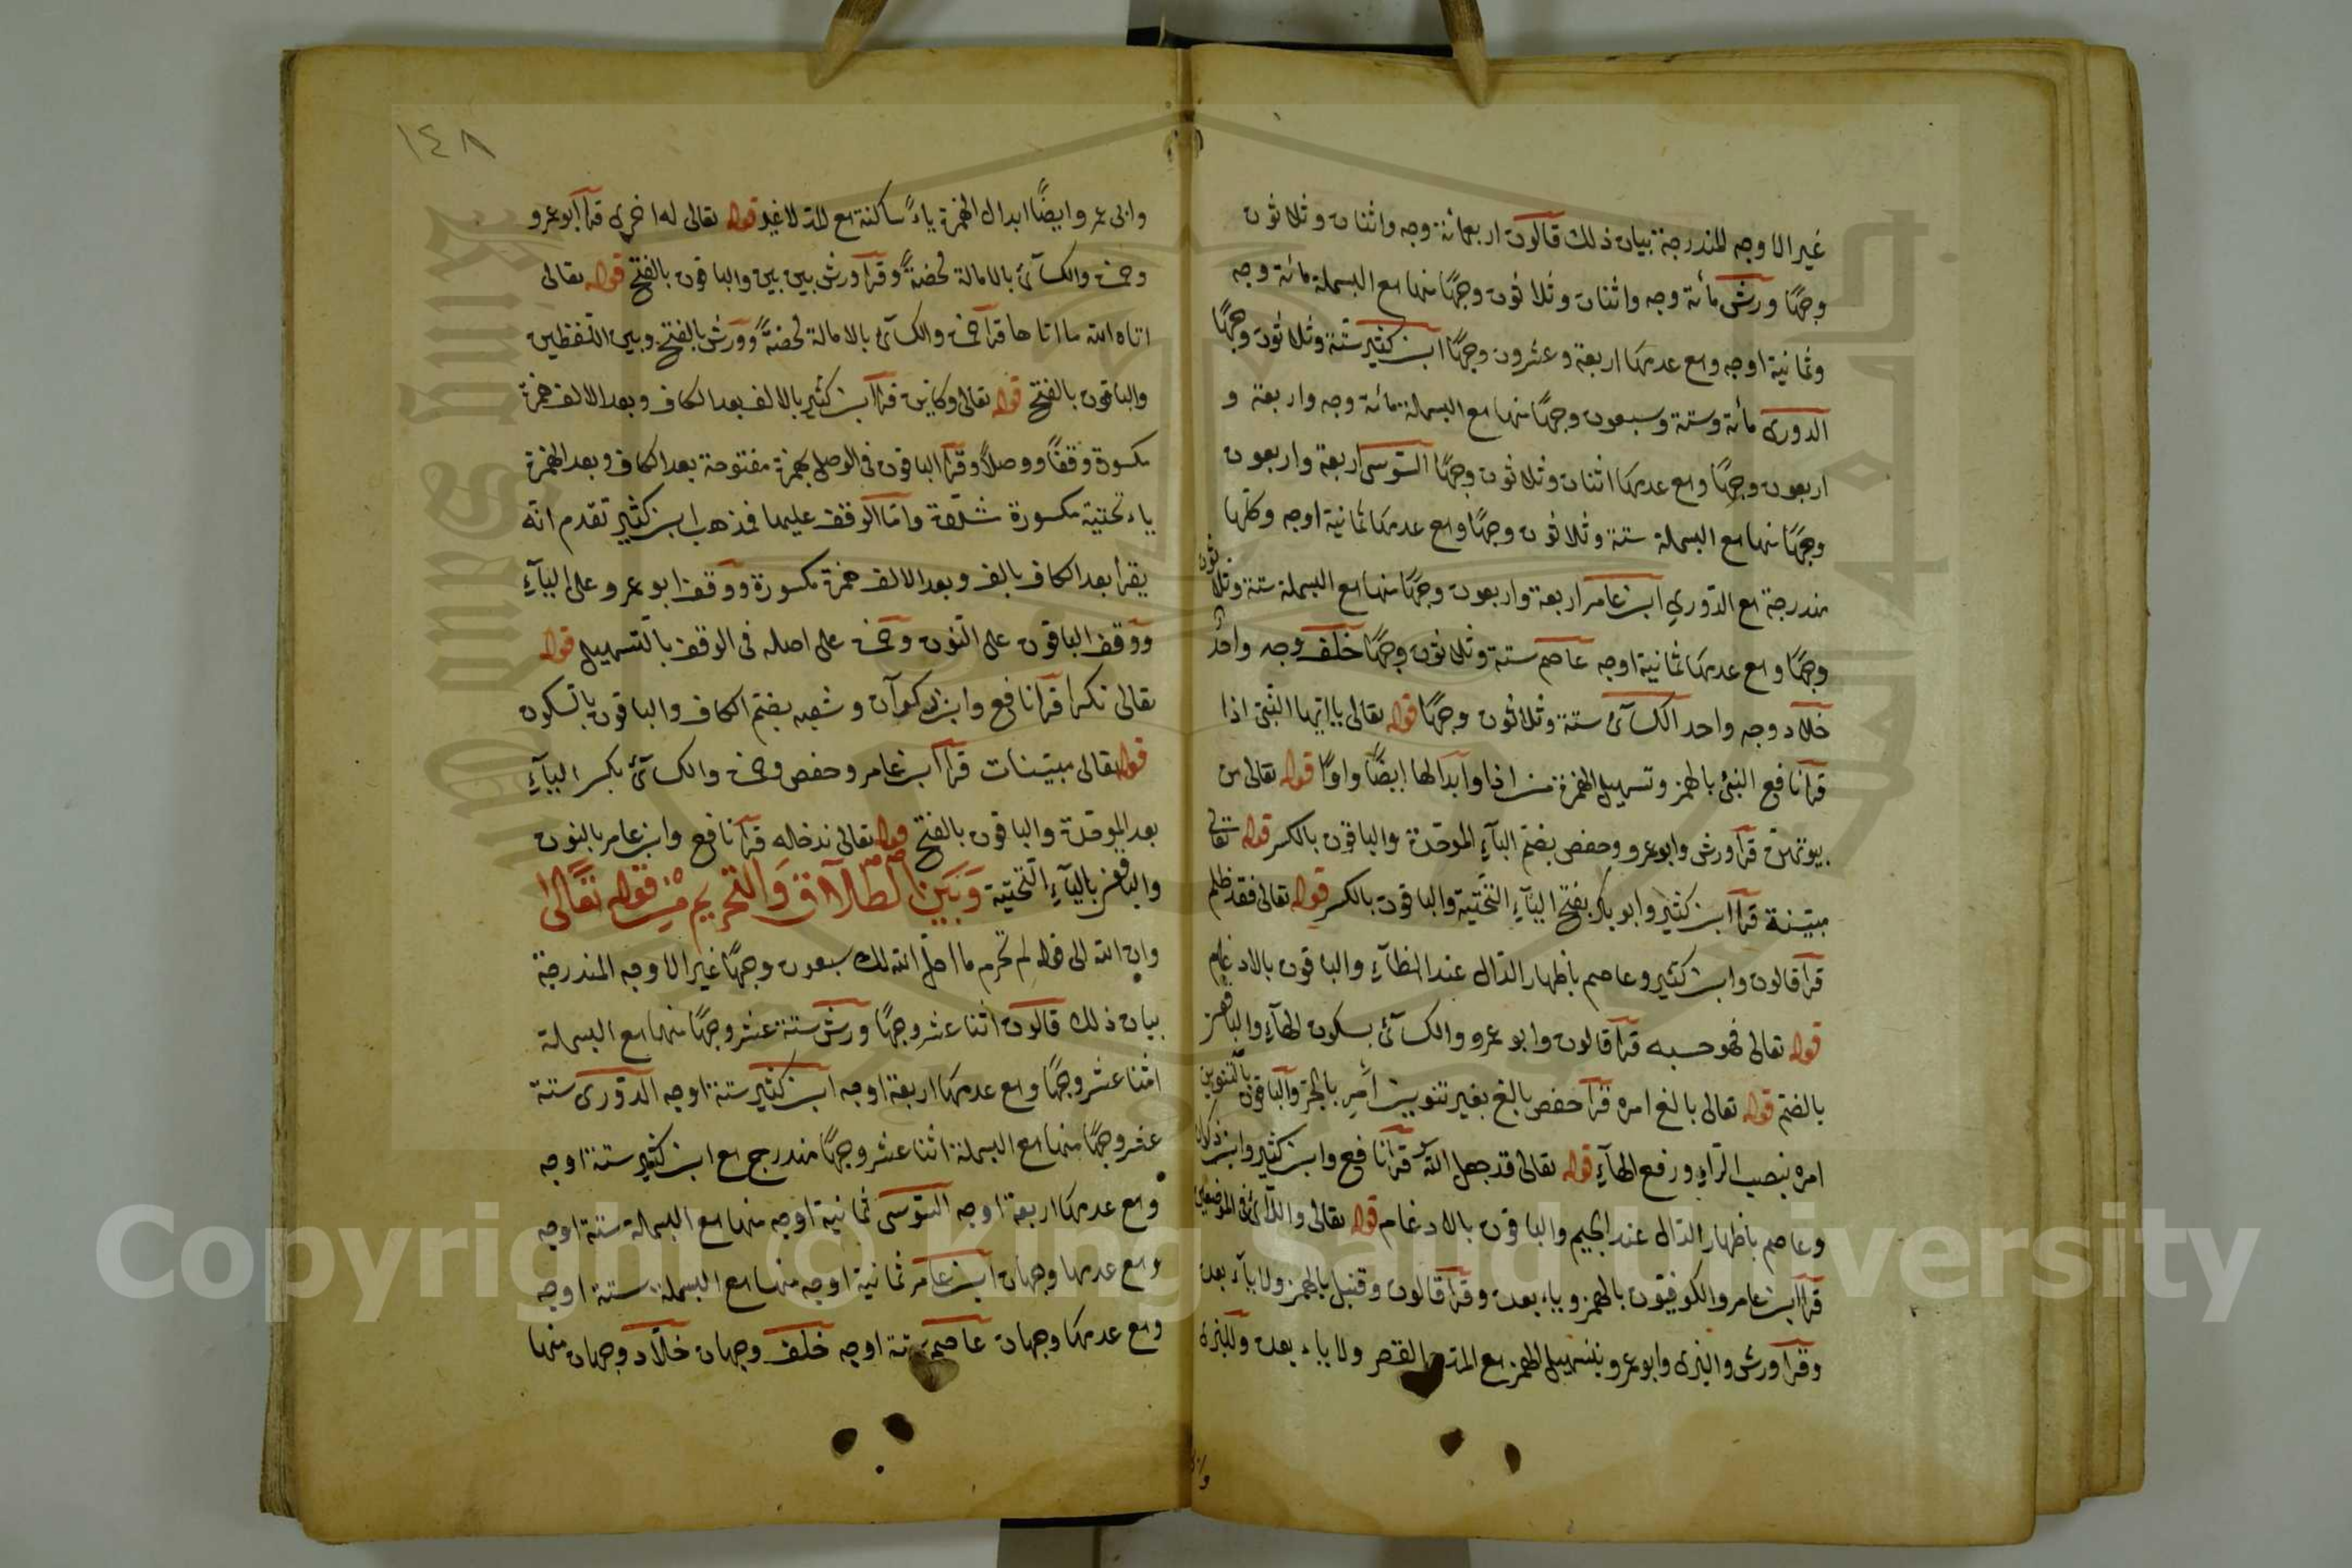 غير الاوجه المندرجة بيان ذلك قالون اربعمائة وجه واثنان وثلاثون
وجهًا ورش مائة وجه واثنان وثلاثون وجهًا منها مع البسملة مائة وجه
وثمانية اوجه ومع عدمها اربعة وعشرون وجهًا ابن كثير ستة وثلاثون وجهًا
الدورى مائة وستة وسبعون وجهًا منها مع البسملة مائة وجه واربعة و
اربعون وجهًا ومع عدمها اثنان وثلاثون وجهًا السّوسى اربعة واربعون
وجهًا منها مع البسملة ستة وثلاثون وجهًا ومع عدمها ثمانية اوجه وكلها
مندرجة مع الدّوري ابن عامر اربعة واربعون وجهًا منها مع البسملة ستة وثلاثون
وجهًا ومع عدمها ثمانية اوجه عاصم ستة وثلاثون وجهًا خلف وجه واحدٌ
خلاد وجه واحد الكسآئ ستة وثلاثون وجهًا قوله تعالى ياايّها النّبىّ اذا
قرأ نافع النبئ بالهمز وتسهيل الهمزة من اذا وابدالها ايضًا واوًا قوله تعالى من
بيوتهنّ قرأ ورش وابوعمرو وحفص بضمّ البآءِ الموحّدة والباقون بالكسر قوله تعالى
مبيّنة قرأ ابن كثير وابو بكر بفتح اليآءِ التّحتية والباقون بالكسر قوله تعالى فقد ظلم
قرأ قالون وابن كثير وعاصم بأظهار الدّال عند الظآءِ والباقون بالادغام
قوله تعالى فهو حسبه قرأ قالون وابو عمرو والكسآئ بسكون الهآءِ والباقون
بالضّم قوله تعالى بالغ امره قرأ حفص بالغ بغير تنوين امرِ بالجرّ والباقون بالتنوين
امره بنصب الرّاءِ ورفع الهآءِ قوله تعالى قد جعل اللّه قرأ نافع وابن كثير وابن ذكوان
وعاصم بأظهار الدّال عند الجيم والباقون بالادغام قوله تعالى واللّآئ فى الموضعين
قرأ ابن عامر والكوفيّون بالهمز وياء بعده وقرأ قالون وقنبل بالهمز ولا يآء بعده
وقرأ ورش والبزى وابوعمرو بتسهيل الهمز مع المدّ والقصر ولا ياء بعده وللبزى
١٤٨
وابى عمرو وايضًا ابدال الهمزة ياءً ساكنة مع المدّ لا غير قوله تعالى له اخرى قرأ ابوعمرو
وحمزة والكسآئ بالامالة محضةً وقرأ ورش بين بين والباقون بالفتح قوله تعالى
اتاه الله ما اتاها قرأ حمزة والكسآئ بالامالة محضةً وورش بالفتح وبين اللّفظين
والباقون بالفتح قوله تعالى وكاين قرأ ابن كثير بالالف بعد الكاف وبعد الالف همزة
مكسورة وقفًا ووصلاً وقرأ الباقون فى الوصل بهمزة مفتوحة بعد الكاف وبعد الهمزة
ياء تحتية مكسورة مشدّدة وامّا الوقف عليها فمذهب ابن كثير تقدم انّه
يقرا بعد الكاف بالف وبعد الالف همزة مكسورة ووقف ابو عمرو على اليآءِ
ووقف الباقون على النّون وحمزة على اصله فى الوقف بالتّسهيل قوله
تعالى نكرا قرأ نافع وابن ذكوآن وشعبه بضمّ الكاف والباقون بالسّكون
قوله تعالى مبيّنات قرأ ابن عامر وحفص وحمزة والكسآئ بكسر اليآءِ
بعد الموحّدة والباقون بالفتح قوله تعالى ندخله قرأ نافع وابن عامر بالنون
والباقون باليآءِ التّحتية وَبَيْنَ الطّلاق وَالتّحريم مِنْ قوله تعَالى
وان الله الى قوله لم تحرم ما احلّ الله لك سبعون وجهًا غير الاوجه المندرجة
بيان ذلك قالون اثنا عشر وجهًا ورش ستة عشر وجهًا منها مع البسملة
اثنا عشر وجهًا ومع عدمها اربعة اوجه ابن كثير ستة اوجه الدّورى ستة
عشر وجهًا منها مع البسملة اثنا عشر وجهًا مندرج مع ابن كثير ستة اوجه
ومع عدمها اربعة اوجه السّوسى ثمانية اوجه منها مع البسملة ستة اوجه
ومع عدمها وجهان ابن عامر ثمانية اوجه منها مع البسملة ستة اوجه
ومع عدمها وجهان عاصم ستة اوجه خلف وجهان خلّاد وجهان منها
Copyright © King Saud University